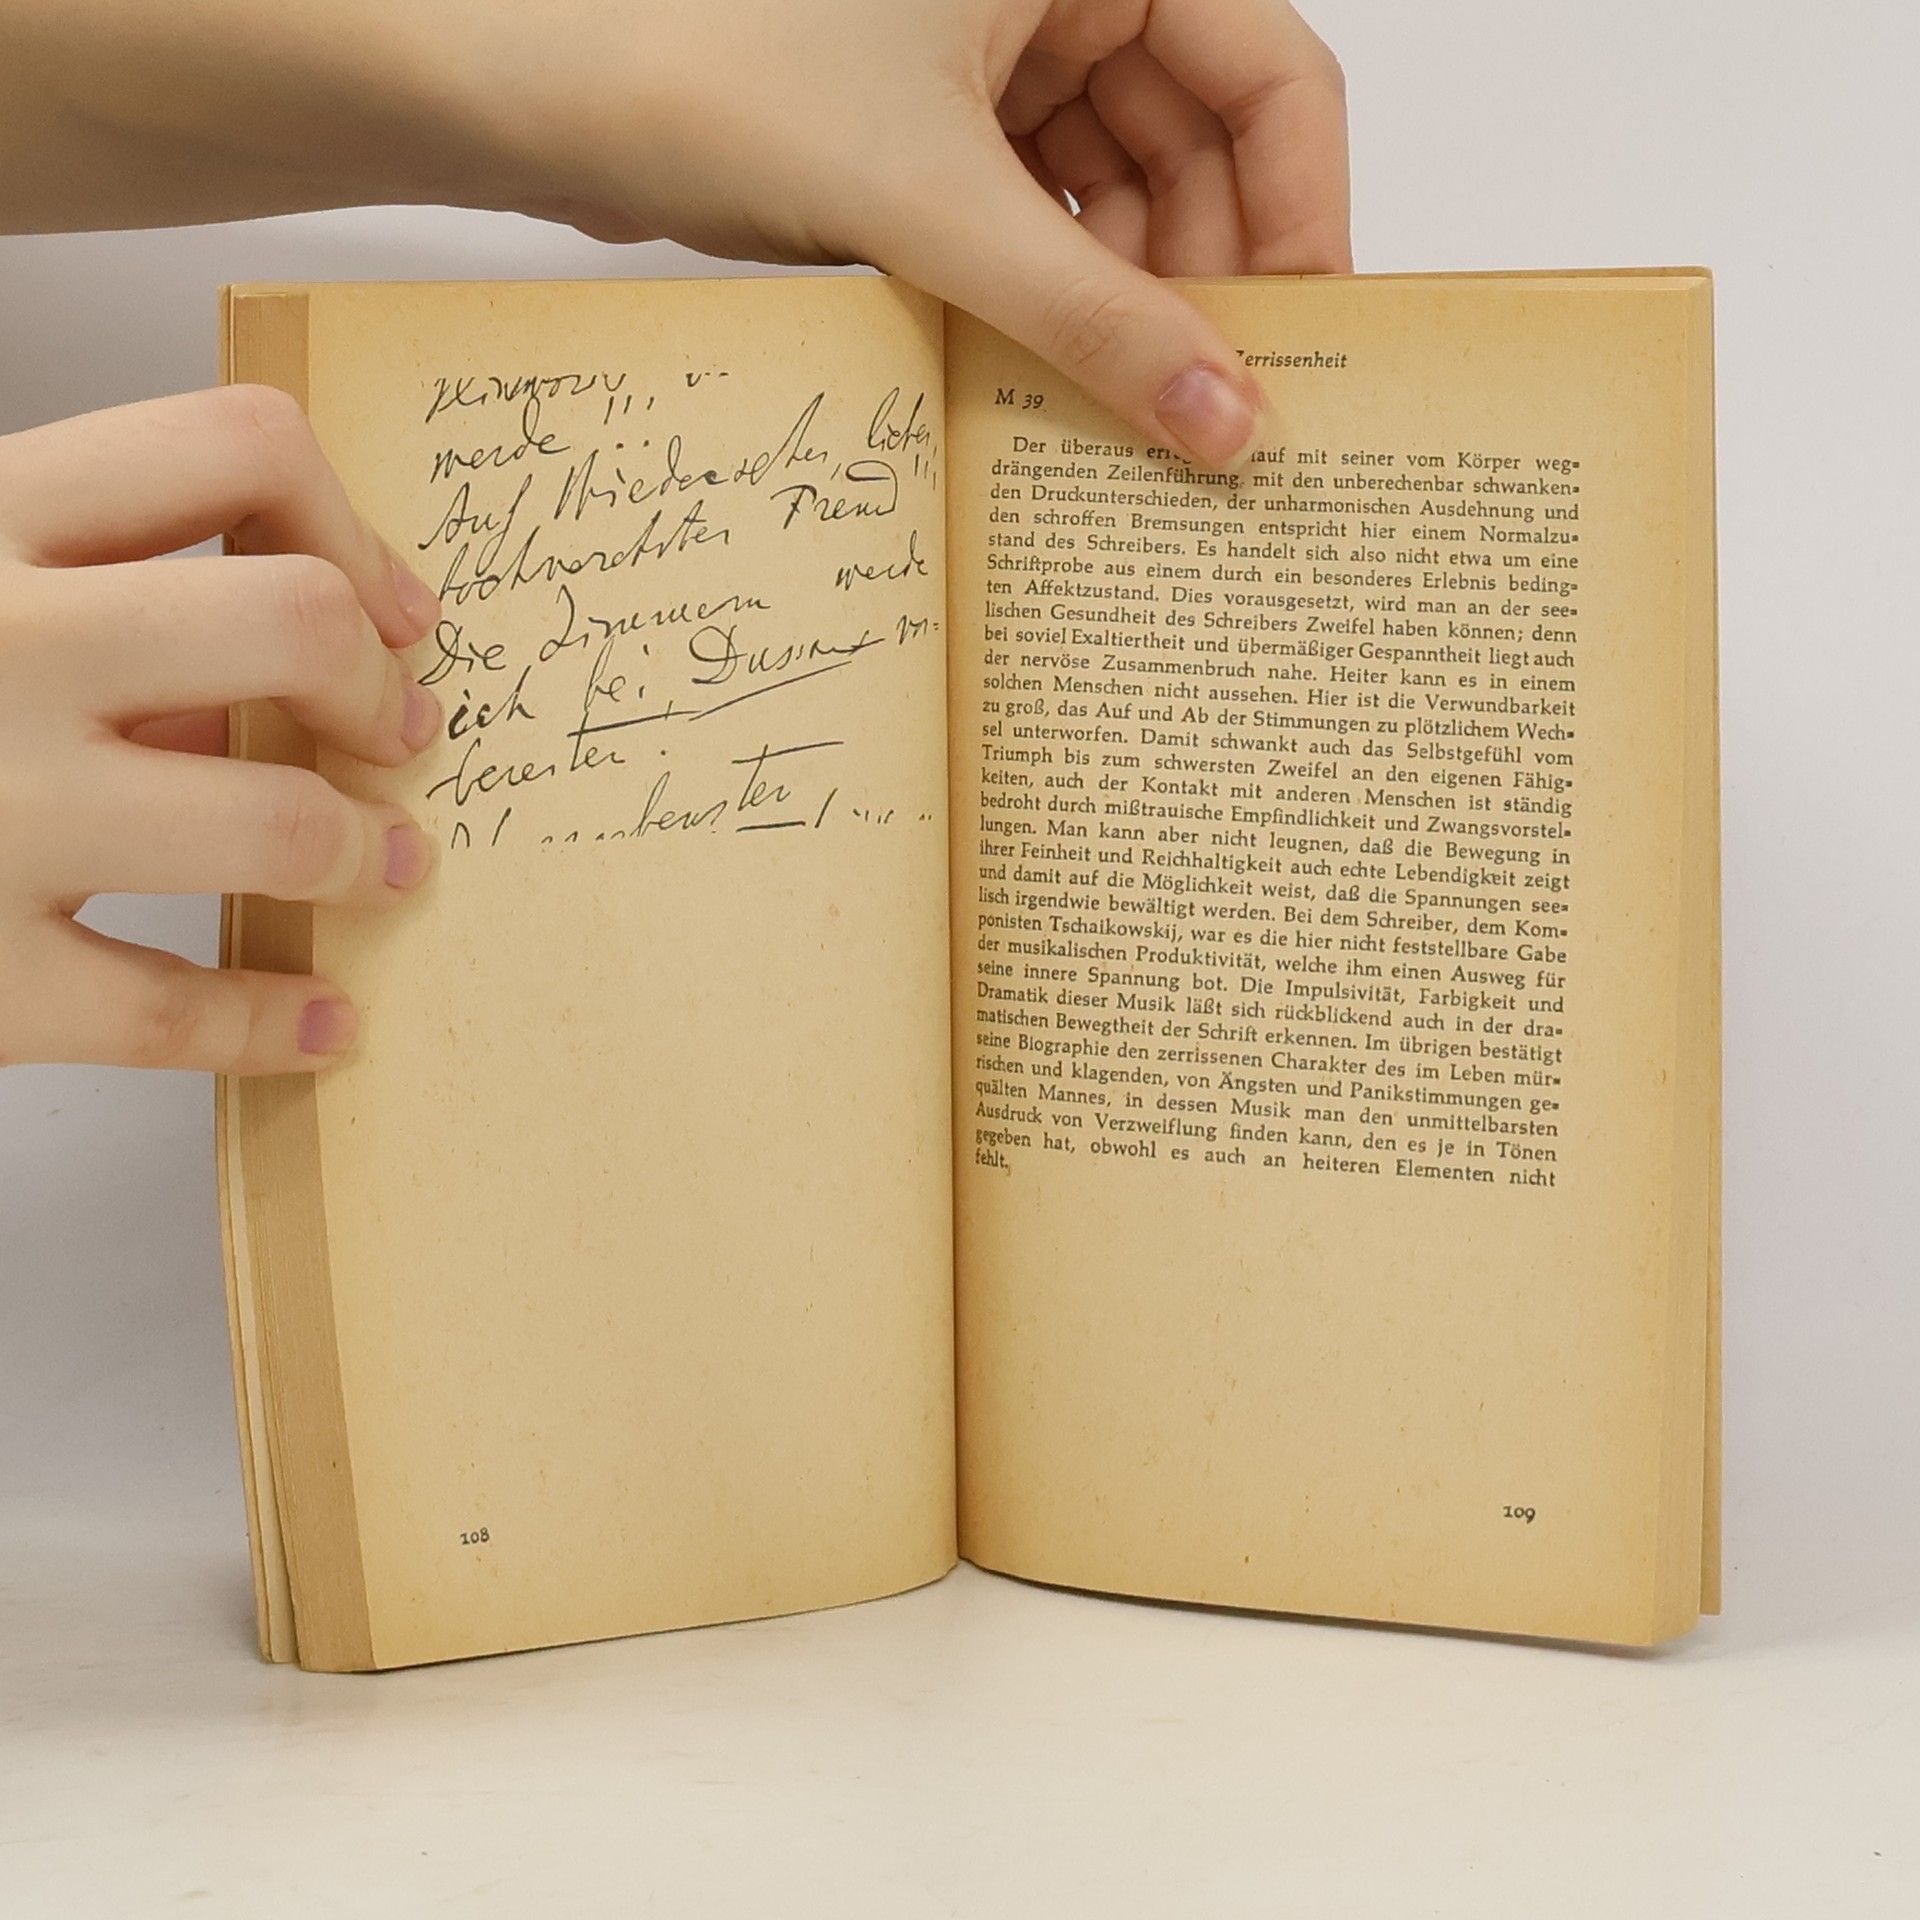 werde
Auf Wiedersehen, lieber,
hochverehrter Freund !!!
Die Zimmern werde
ich bei Dussaux
bereiten.
108
Zerrissenheit
M 39.
Der überaus lauf mit seiner vom Körper weg=
drängenden Zeilenführung, mit den unberechenbar schwanken=
den Druckunterschieden, der unharmonischen Ausdehnung und
den schroffen Bremsungen entspricht hier einem Normalzu=
stand des Schreibers. Es handelt sich also nicht etwa um eine
Schriftprobe aus einem durch ein besonderes Erlebnis beding=
ten Affektzustand. Dies vorausgesetzt, wird man an der see=
lischen Gesundheit des Schreibers Zweifel haben können; denn
bei soviel Exaltiertheit und übermäßiger Gespanntheit liegt auch
der nervöse Zusammenbruch nahe. Heiter kann es in einem
solchen Menschen nicht aussehen. Hier ist die Verwundbarkeit
zu groß, das Auf und Ab der Stimmungen zu plötzlichem Wech=
sel unterworfen. Damit schwankt auch das Selbstgefühl vom
Triumph bis zum schwersten Zweifel an den eigenen Fähig=
keiten, auch der Kontakt mit anderen Menschen ist ständig
bedroht durch mißtrauische Empfindlichkeit und Zwangsvorstel=
lungen. Man kann aber nicht leugnen, daß die Bewegung in
ihrer Feinheit und Reichhaltigkeit auch echte Lebendigkeit zeigt
und damit auf die Möglichkeit weist, daß die Spannungen see=
lisch irgendwie bewältigt werden. Bei dem Schreiber, dem Kom=
ponisten Tschaikowskij, war es die hier nicht feststellbare Gabe
der musikalischen Produktivität, welche ihm einen Ausweg für
seine innere Spannung bot. Die Impulsivität, Farbigkeit und
Dramatik dieser Musik läßt sich rückblickend auch in der dra=
matischen Bewegtheit der Schrift erkennen. Im übrigen bestätigt
seine Biographie den zerrissenen Charakter des im Leben mür=
rischen und klagenden, von Ängsten und Panikstimmungen ge=
quälten Mannes, in dessen Musik man den unmittelbarsten
Ausdruck von Verzweiflung finden kann, den es je in Tönen
gegeben hat, obwohl es auch an heiteren Elementen nicht
fehlt.
109